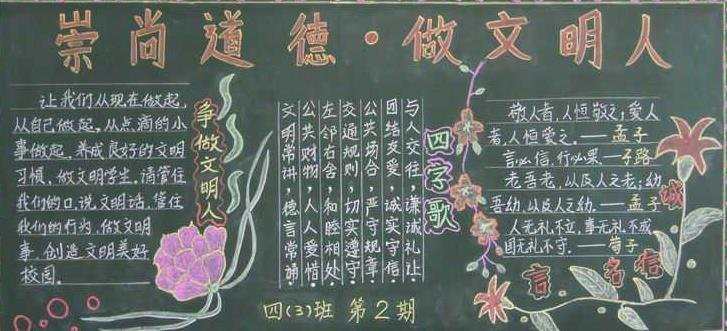 崇尚道德·做文明人
让我们从现在做起,
从自己做起,从点滴的小
事做起,养成良好的文明
习惯,做文明学生。请管住
我们的口,说文明话,管住
我们的行为,做文明
事,创造文明美好
校园。
争做文明人
四字歌
与人交往,谦诚礼让.
团结友爱,诚实守信.
公共场合,严守规章.
交通规则,切实遵守.
左邻右舍,和睦相处.
公共财物,人人爱惜.
文明常讲,德言常诵.
敬人者,人恒敬之;爱人
者,人恒爱之.——孟子
言必信,行必果——子路
老吾老,以及人之老;幼
吾幼,以及人之幼.——孟子
人无礼不立,事无礼不成,
国无礼不守.——荀子
诚
信
名
言
四(3)班 第2期